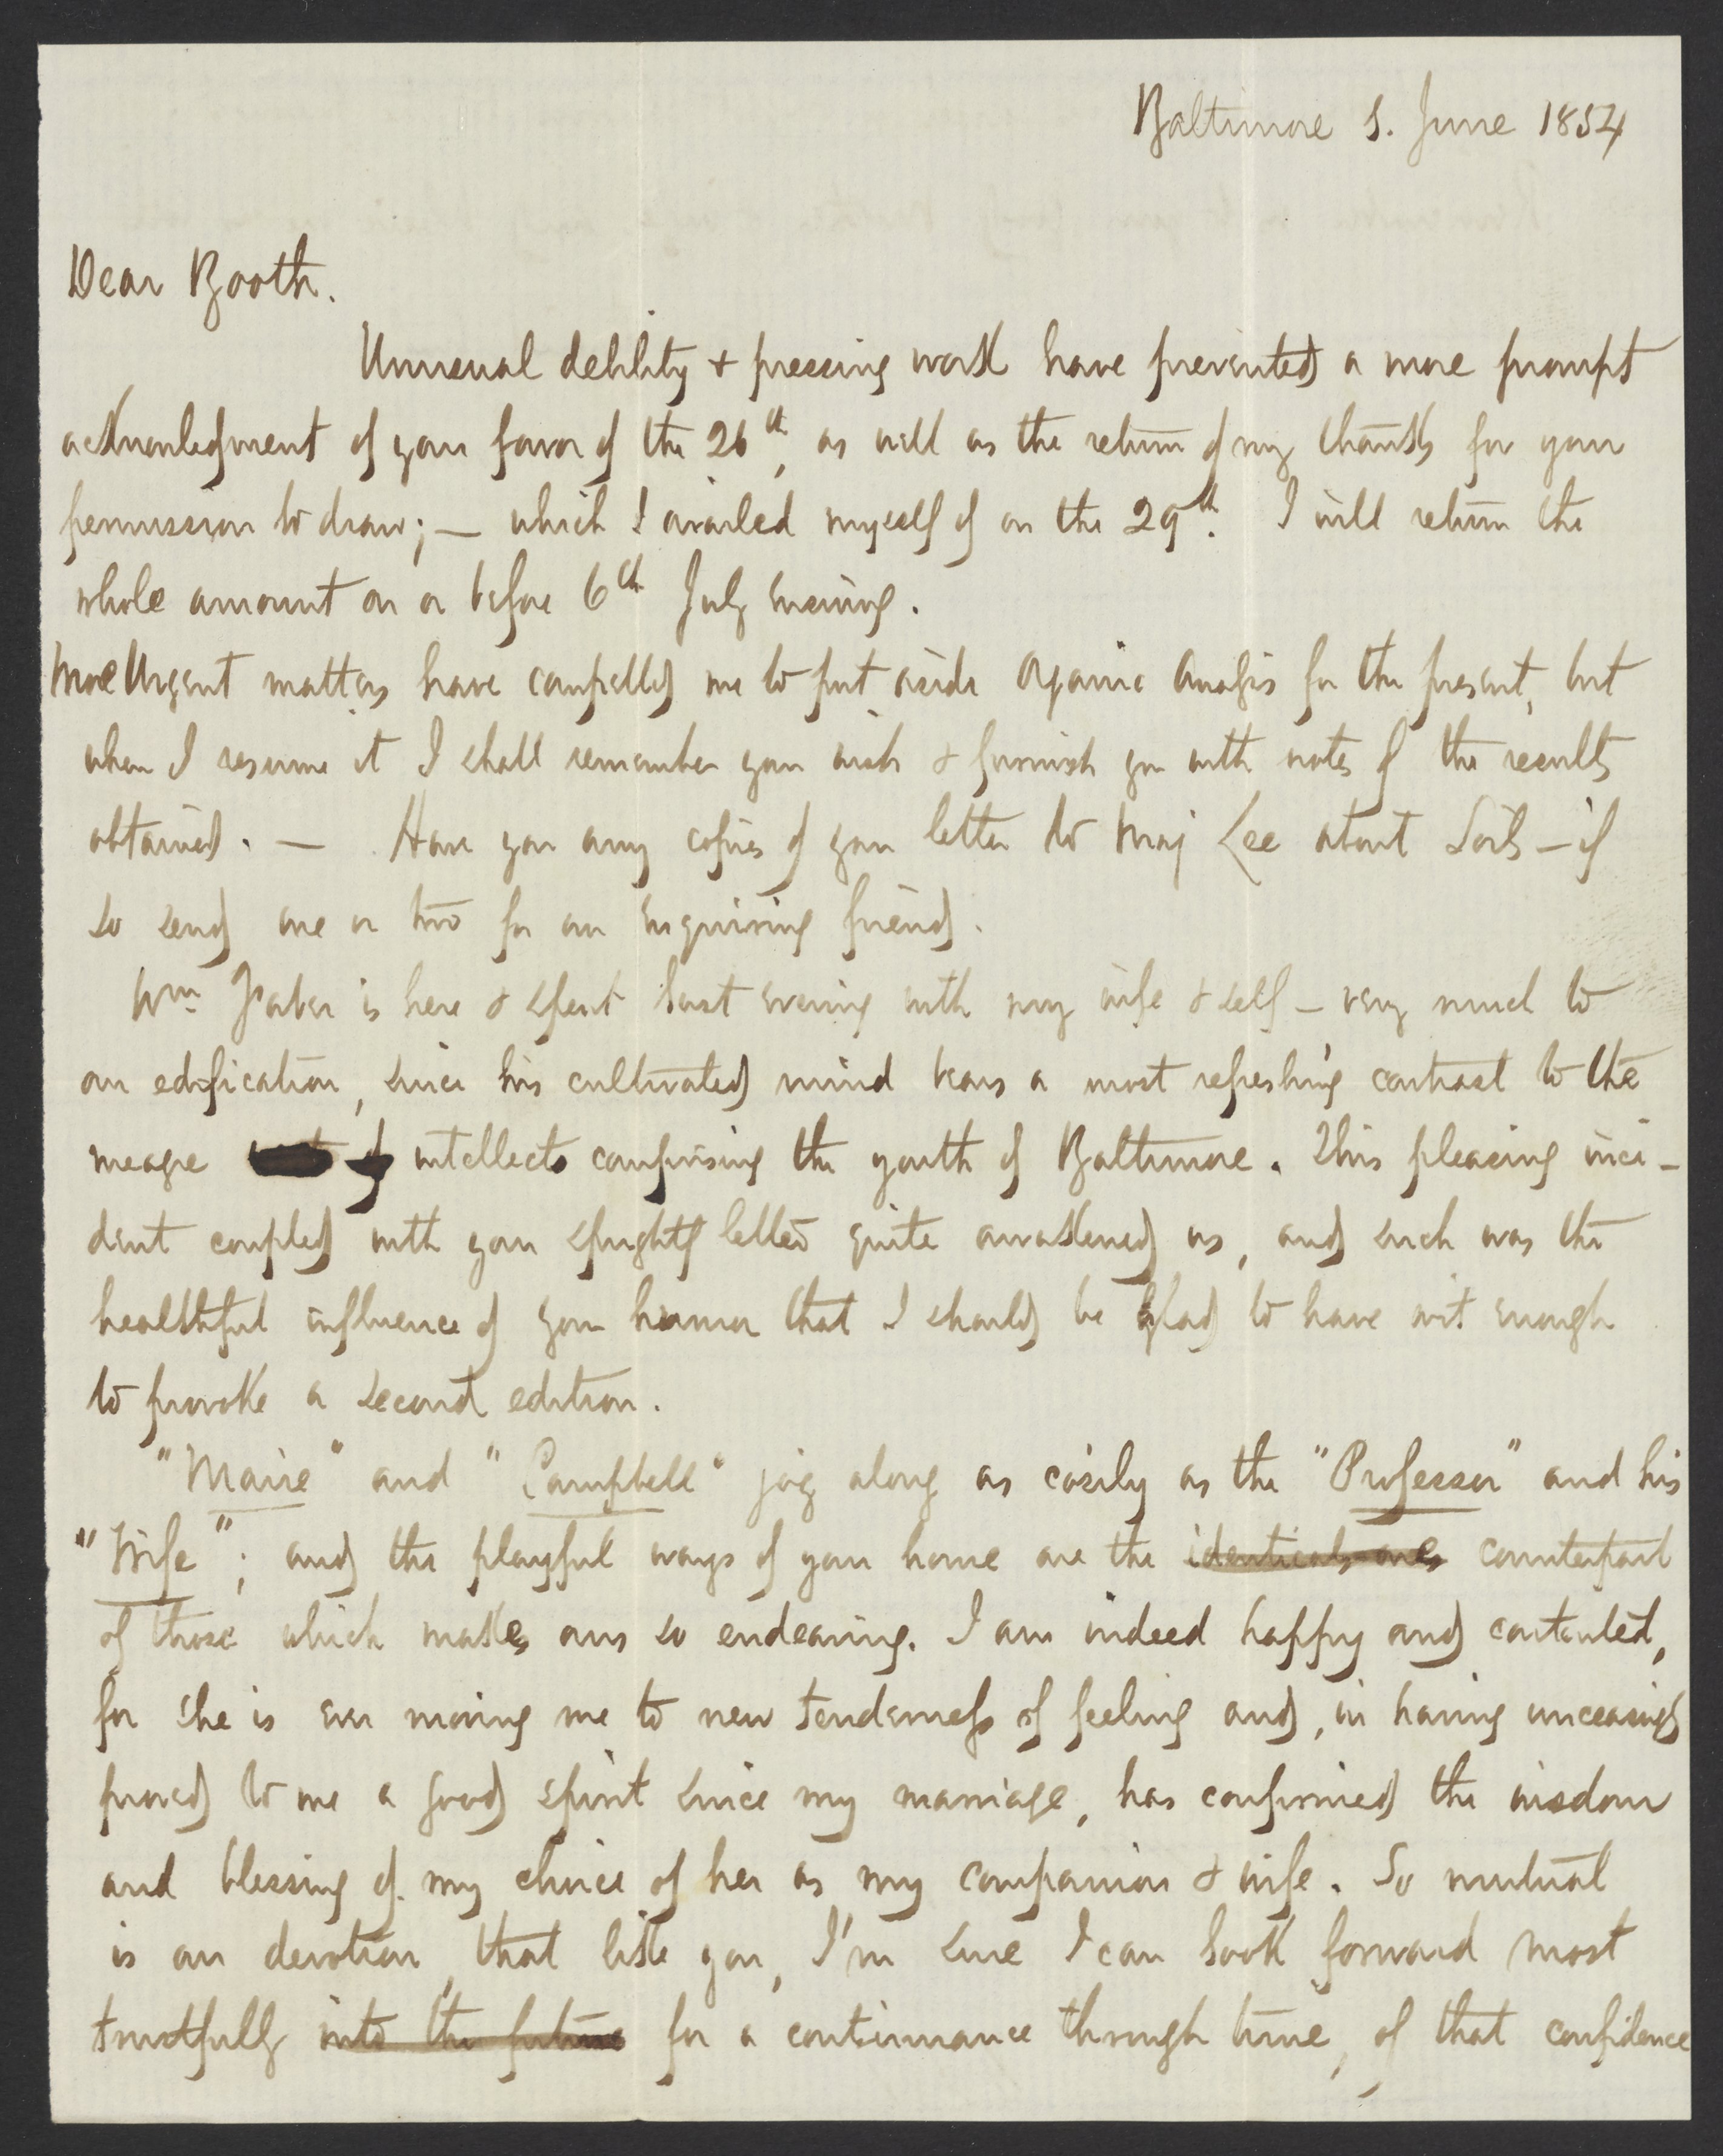 Baltimore 5. June 1854
Dear Booth.
Unusual debility & pressing work have prevented a more prompt
acknowledgment of your favor of the 26th, as well as the return of my thanks for your
permission to draw; — which I availed myself of on the 29th. I will return the
whole amount on or before 6th July ensuing.
More Urgent matters have compelled me to put aside Organic Analysis for the present, but
when I resume it I shall remember your wish & furnish you with notes of the results
obtained. — Have you any copies of your letter to Maj Lee about Soils — if
so send one or two for an enquiring friend.
Wm is here & spent last evening with my wife & self — very much to
our edification, since his cultivated mind bears a most refreshing contrast to the
meagre intellects comprising the youth of Baltimore. This pleasing inci-
dent coupled with your sprightly letter quite awakened us, and such was the
healthful influence of your humor that I should be glad to have wit enough
to provoke a second edition.
"Marie" and "Campbell" jog along as cosily as the "Professor" and his
"Wife"; and the playful ways of your home are the identical ones counterpart
of those which makes ours so endearing. I am indeed happy and contented,
for she is ever moving me to new tenderness of feeling and, in having unceasingly
proved to me a good spirit since my marriage, has confirmed the wisdom
and blessing of my choice of her as my companion & wife. So mutual
is our devotion, that like you, I'm sure I can look forward most
trustfully into the future for a continuance through time, of that confidence